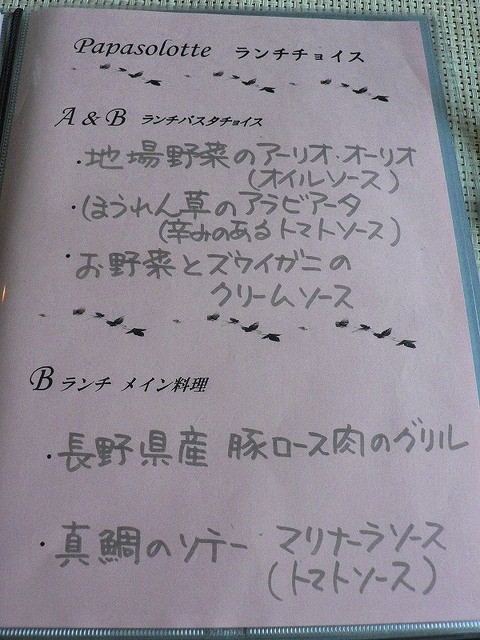 Papasolotte ランチチョイス
A & B ランチパスタチョイス
・地場野菜のアーリオ・オーリオ
(オイルソース)
・ほうれん草のアラビアータ
(辛みのあるトマトソース)
・お野菜とズワイガニの
クリームソース
B ランチ メイン料理
・長野県産 豚ロース肉のグリル
・真鯛のソテー マリナーラソース
(トマトソース)